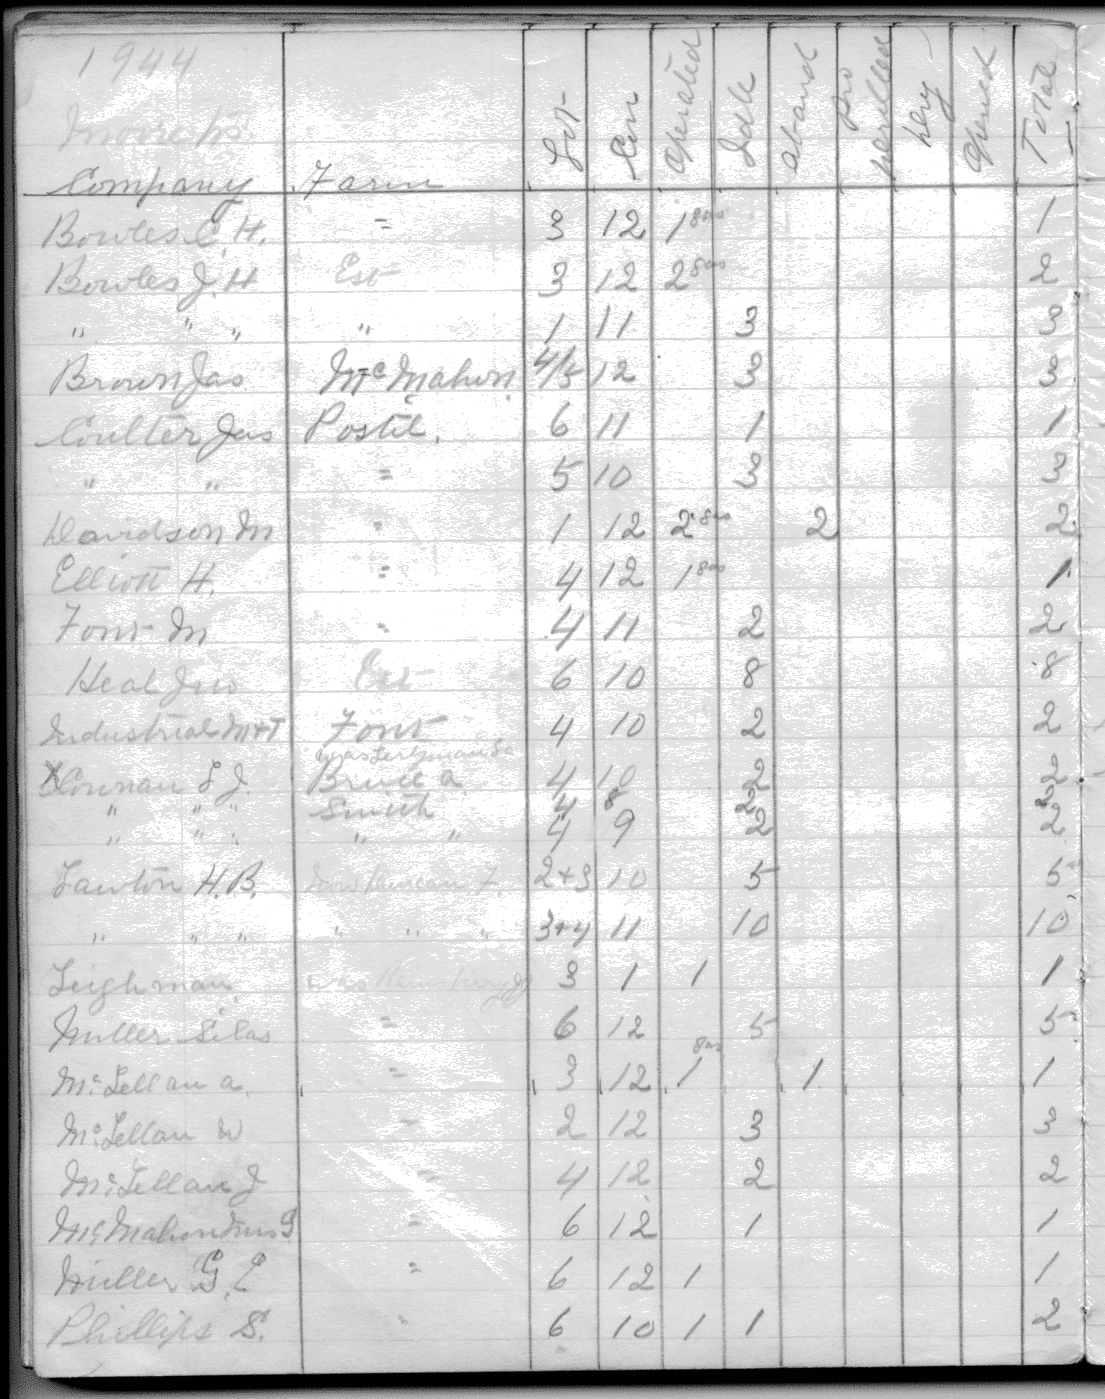 1944
Company Farm Lot Con Operated Idle aband drilled Dry Opened Total
Bowles C. H. = 3 12 1 gas 1
Bowles J. H Est 3 12 2 gas 2
" " " " 1 11 3 3
Brown Jas McMahon 4/5 12 3 3
Coulter Jas Postil. 6 11 1 1
" " = 5 10 3 3
Davidson M = 1 12 2 gas 2 2
Elliott H. = 4 12 1 gas 1
Font M = 4 11 2 2
Heal Jno Est 6 10 8 8
Industrial M+T Font 4 10 2 2
was Leighman
X S J. Bruce A. 4 10 2 2
" " " Smith 4 8 2 2
" " " " " 4 9 2 2
Lawton H. B. 2+3 10 5 5
" " " " " " 3+4 11 10 10
Leighman was 3 1 1 1
Miller Silas = 6 12 5 5
McLellan A. = 3 12 1 gas 1 1
McLellan W = 2 12 3 3
McLellan J = 4 12 2 2
McMahon = 6 12 1 1
Miller G. E = 6 12 1 1
Phillips S. " 6 10 1 1 2